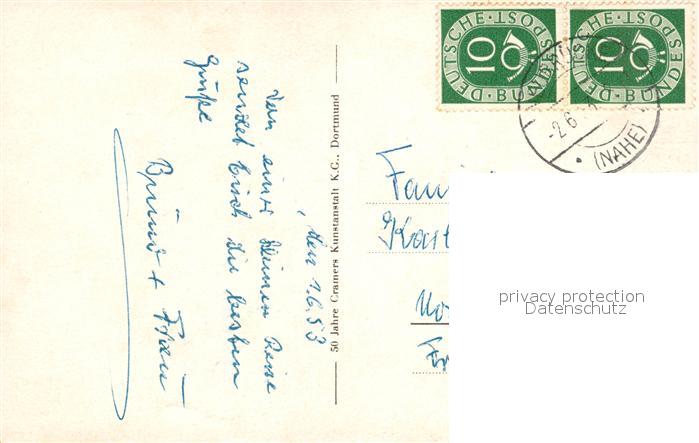 DEUTSCHE · POST · BUNDESPOST
10
DEUTSCHE · POST · BUNDESPOST
10
-2.6.
(NAHE)
, den 1.6.53
Von einer kleinen Reise
sendet Euch die besten
Grüße
Bruno + Frau
50 Jahre Cramers Kunstanstalt K.G., Dortmund
Fam
Karl
privacy protection
Datenschutz